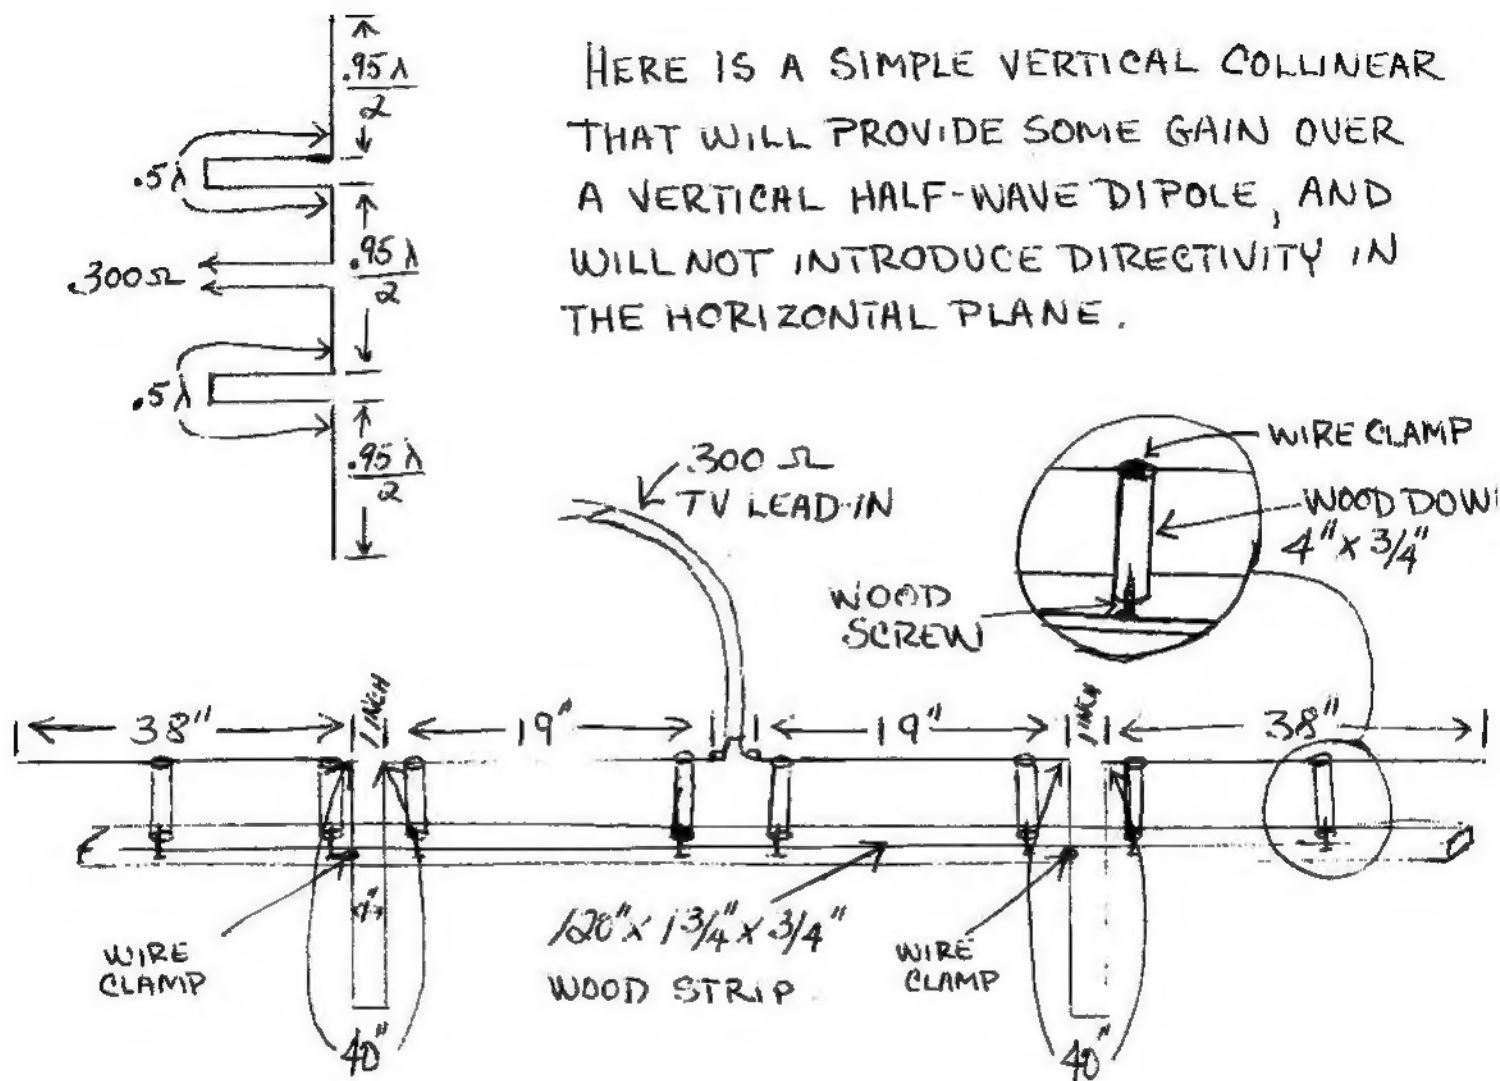 HERE IS A SIMPLE VERTICAL COLLINEAR
THAT WILL PROVIDE SOME GAIN OVER
A VERTICAL HALF-WAVE DIPOLE, AND
WILL NOT INTRODUCE DIRECTIVITY IN
THE HORIZONTAL PLANE.
.95 λ
2
.5λ
.95 λ
2
.300Ω
.5λ
.95 λ
2
.300 Ω
TV LEAD-IN
WIRE CLAMP
WOOD DOW
4" x 3/4"
WOOD
SCREW
38"
1 INCH
19"
19"
1 INCH
38"
WIRE
CLAMP
120" x 1 3/4" x 3/4"
WOOD STRIP
WIRE
CLAMP
40"
40"